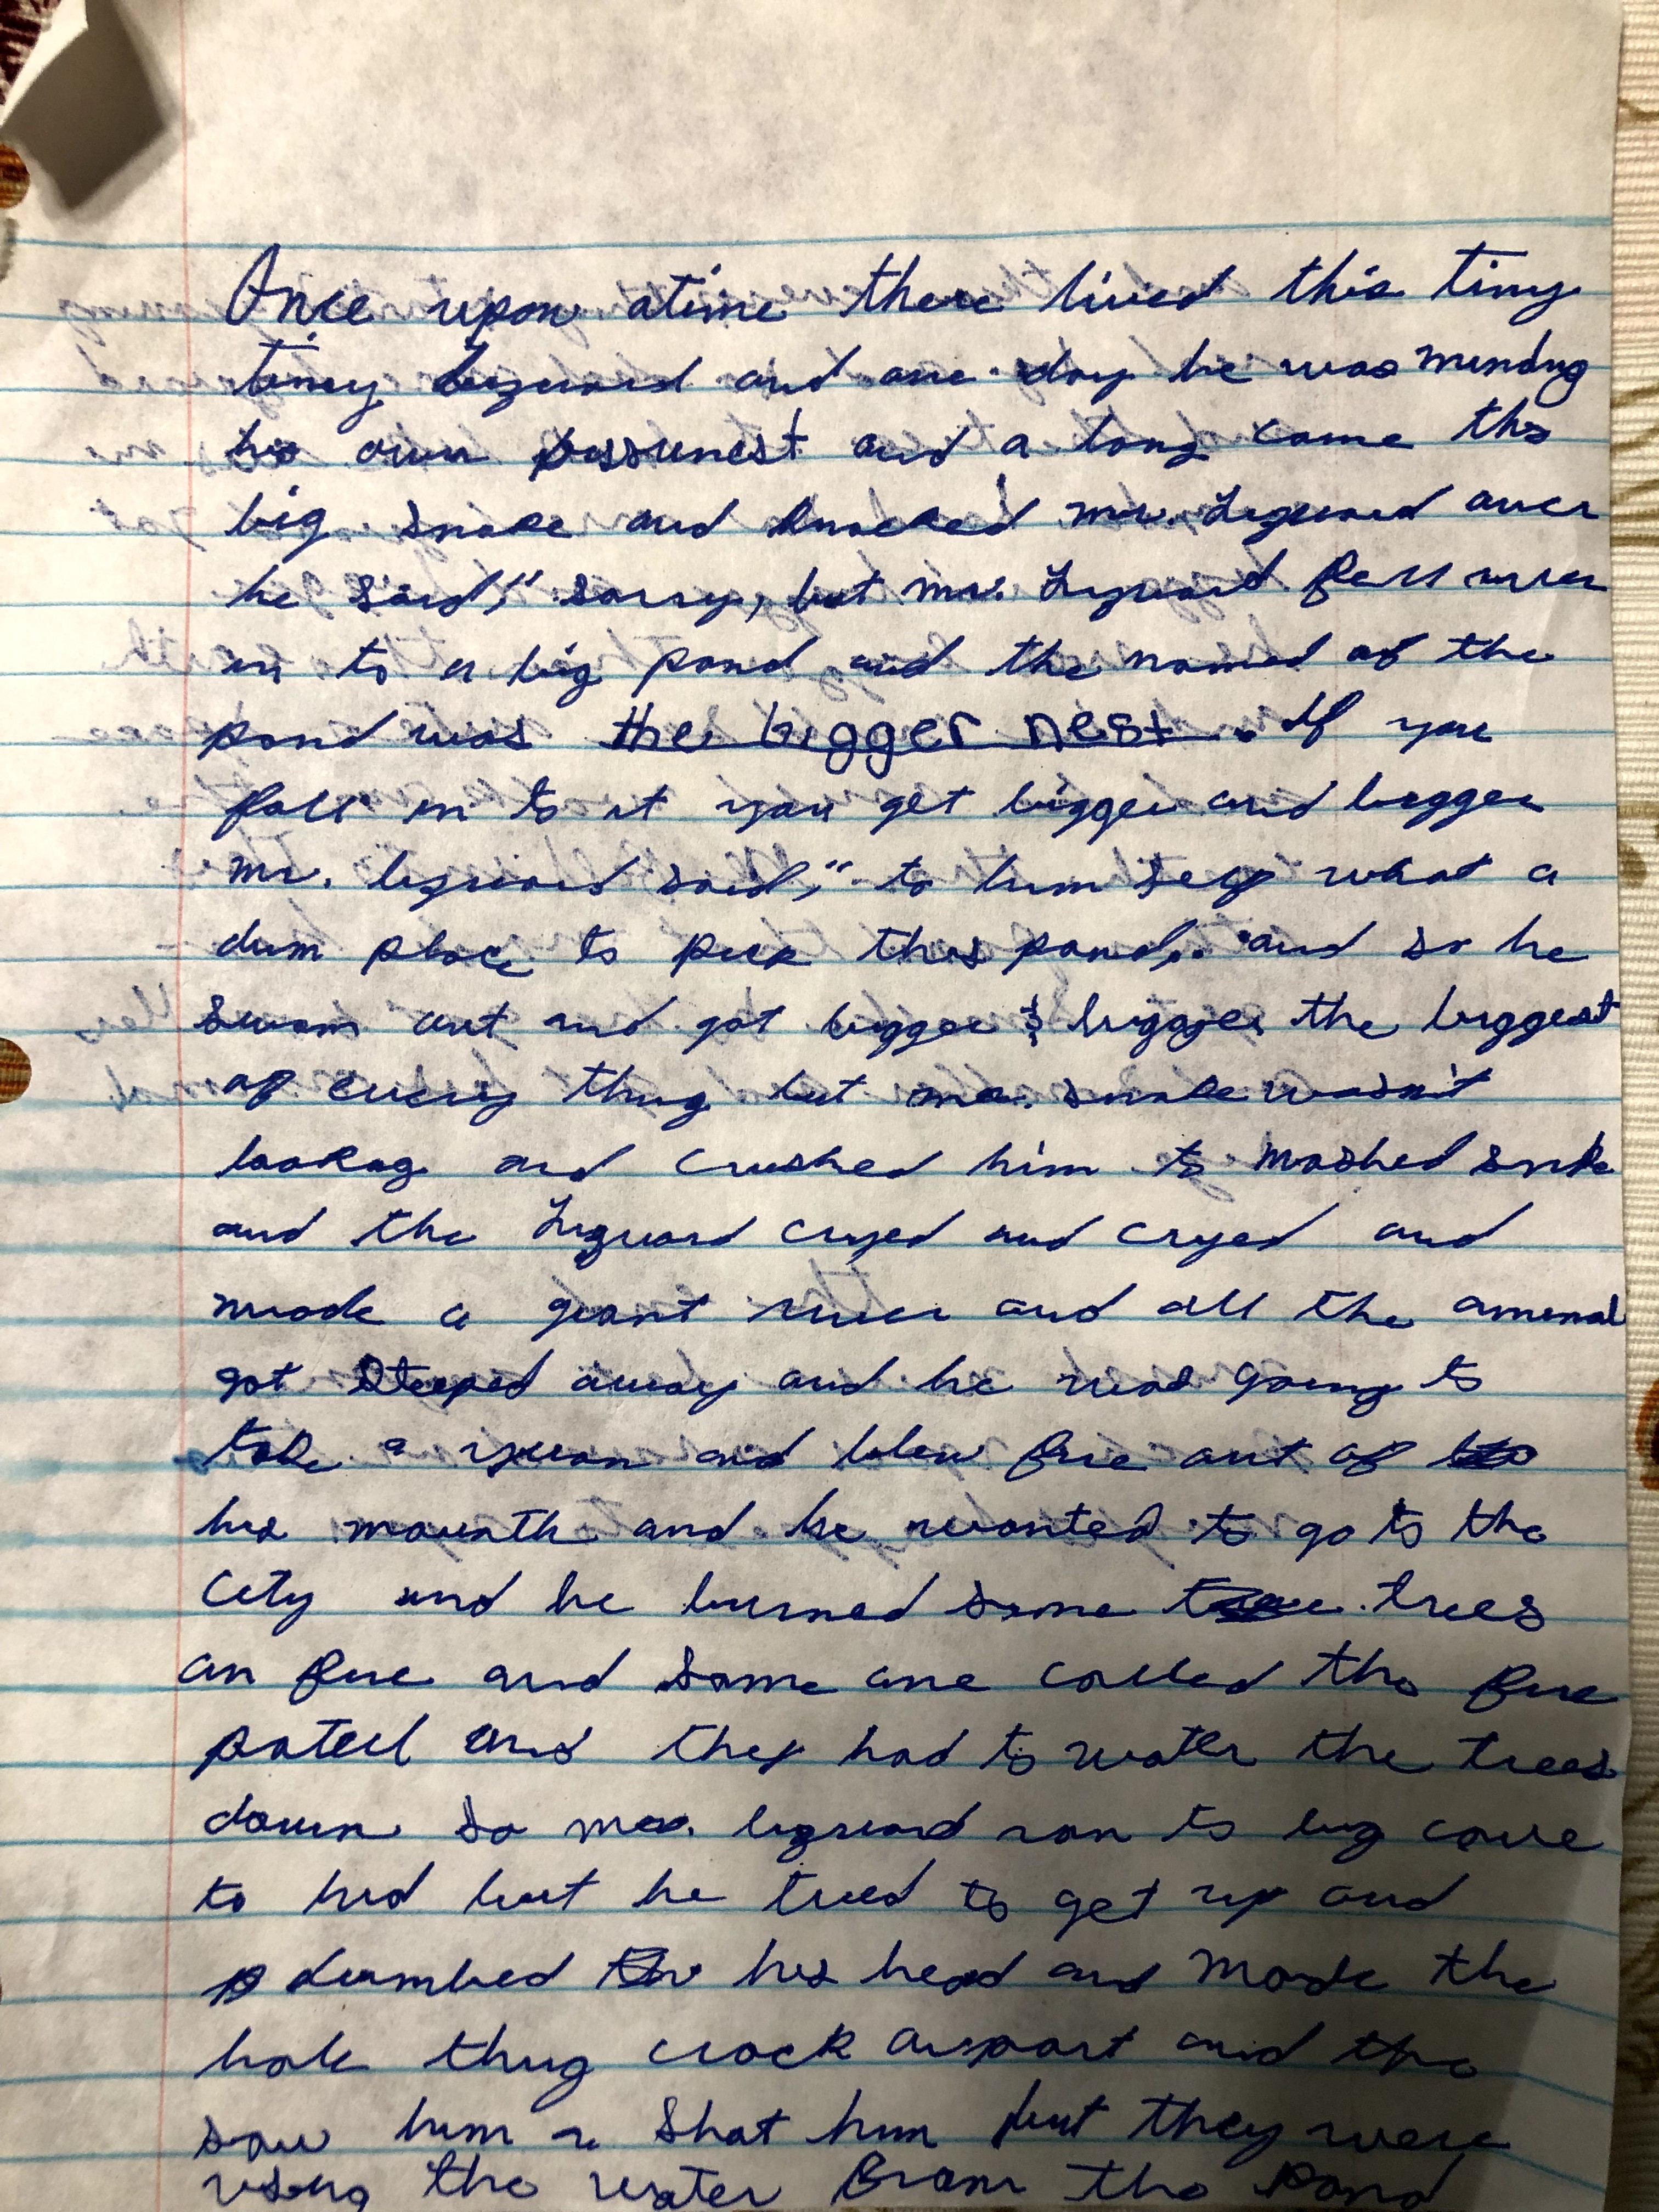 Once upon atime there lived this tiny
tiney Lizuard and one day he was minding
his own bissunest and a long came this
big snake and knocked mr. Lizuard over
he said," sorry, but mr. Lizuard fell over
in to a big pond and the named of the
pond was the bigger nest. If you
fall in to it you get bigger and bigger
mr. lizuard said," to him self what a
dum place to pick this pond," and so he
swam out and got bigger & bigger the biggest
of every thing but mr. snake wasn't
looking and crushed him to mashed snake
and the Lizuard cryed and cryed and
made a giant river and all the amimal
got steeped away and he was going to
take a and blew fire out of
his mounth and he wanted to go to the
city and he burned some trees
on fire and some one called the fire
poteel and they had to water the trees
down so mr. lizuard ran to big cave
to hid but he tried to get up and
bumbed his head and made the
hole thing crack aspart and the
saw him n shot him but they were
using the water from the pond